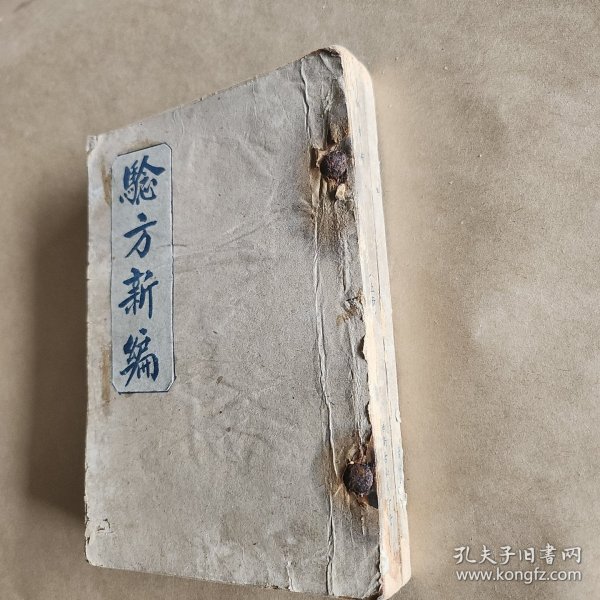 騐方新編
孔夫子旧書网
www.kongfz.com